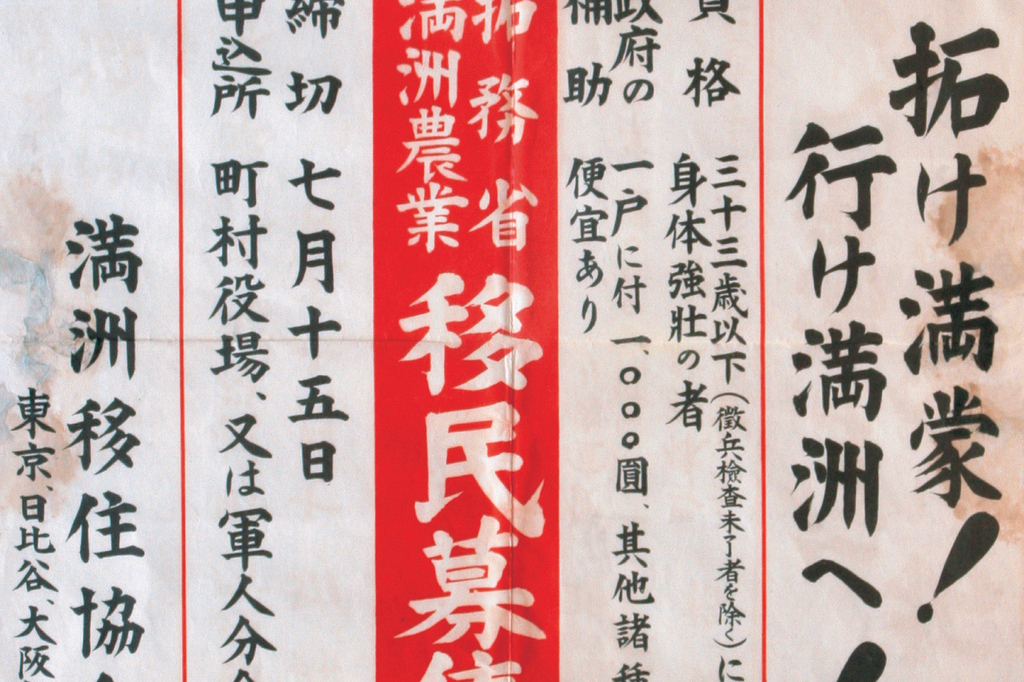 拓け満蒙!
行け満洲へ!
資格 三十三歳以下(徴兵檢査未了者を除く)に
身体強壯の者
政府の補助 一戸に付 一、〇〇〇圓、其他諸種
便宜あり
拓務省
満洲農業
移民募集
締切 七月十五日
申込所 町村役場、又は軍人分会
満洲移住協会
東京、日比谷、大阪